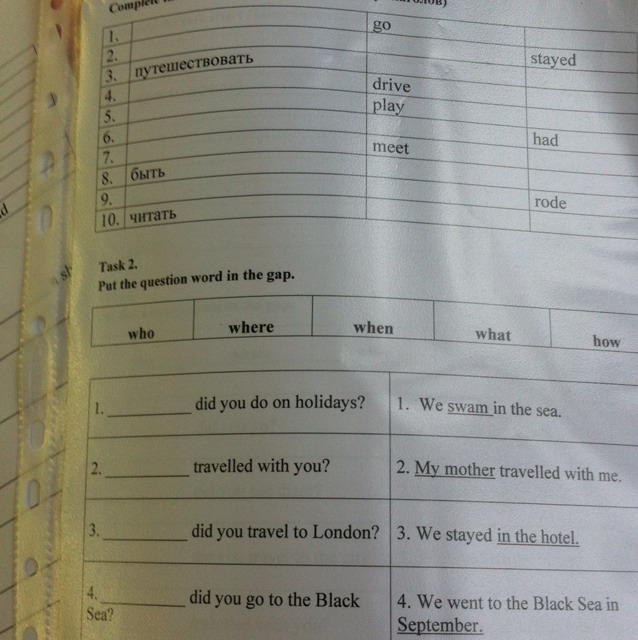 Complete
1. go
2. stayed
3. путешествовать
4. drive
5. play
6. had
7. meet
8. быть
9. rode
10. читать
Task 2.
Put the question word in the gap.
who where when what how
1. ________ did you do on holidays? 1. We swam in the sea.
2. ________ travelled with you? 2. My mother travelled with me.
3. ________ did you travel to London? 3. We stayed in the hotel.
4. ________ did you go to the Black 4. We went to the Black Sea in
Sea? September.